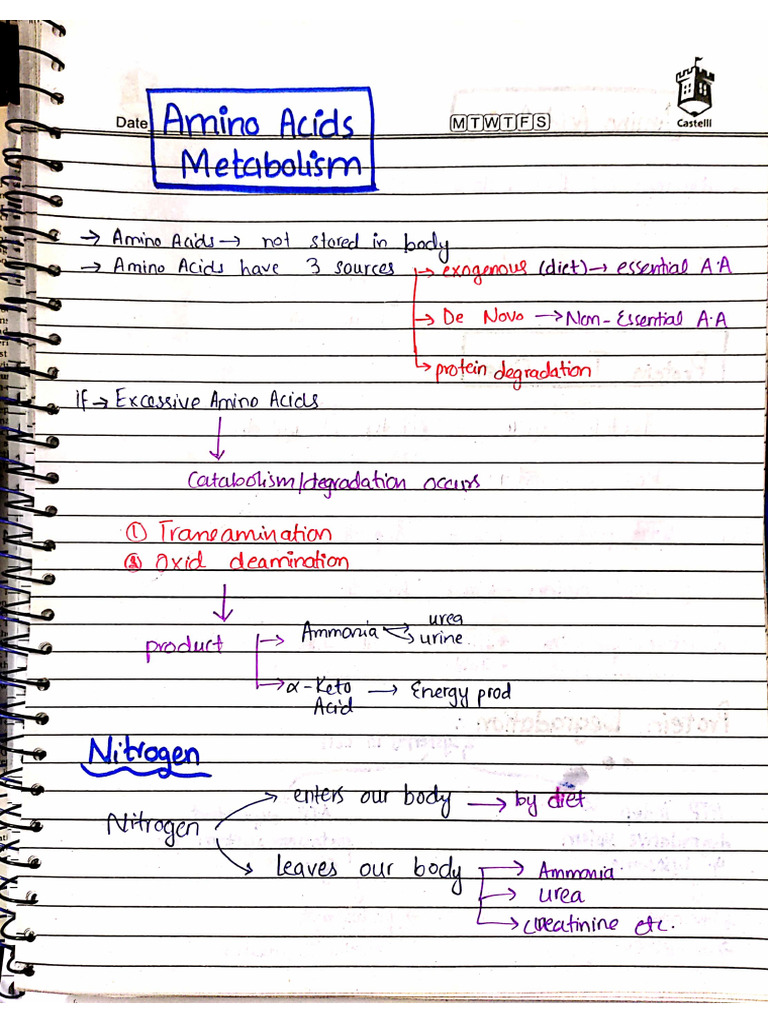 Date
MTWTFS
Castelli
Amino Acids
Metabolism
→ Amino Acids → not stored in body
→ Amino Acids have 3 sources → exogenous (diet) → essential A.A
→ De Novo → Non-Essential A.A
→ protein degradation
If → Excessive Amino Acids
Catabolism/degradation occurs
① Transamination
② Oxid deamination
product → Ammonia → urea
→ urine
→ α-Keto Acid → Energy prod
Nitrogen
Nitrogen → enters our body → by diet
→ leaves our body → Ammonia
→ urea
→ creatinine etc.